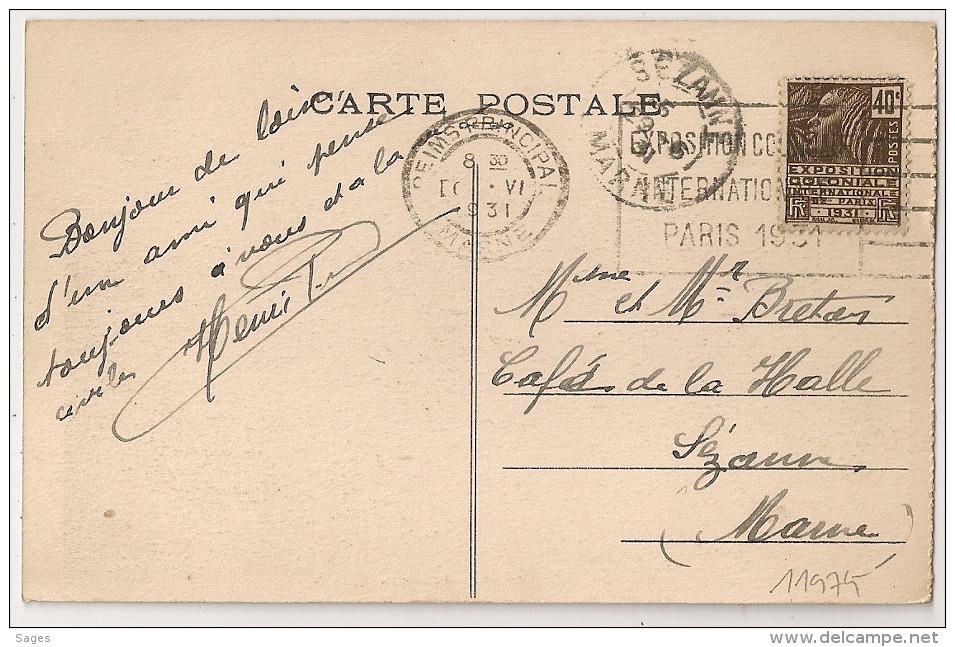 CARTE POSTALE
Bonjour de loin
d'un ami qui pense
toujours à vous et a la
Henri
REIMS PRINCIPAL
8 30
VI
1931
MARNE
SEZANNE
MARNE
EXPOSITION CO
INTERNATION
PARIS 1931
40c
POSTES
EXPOSITION
COLONIALE
INTERNATIONALE
DE PARIS
1931
Mme et Mr Breton
Cafés de la Halle
Sézanne
(Marne)
11975
Sages
www.delcampe.net